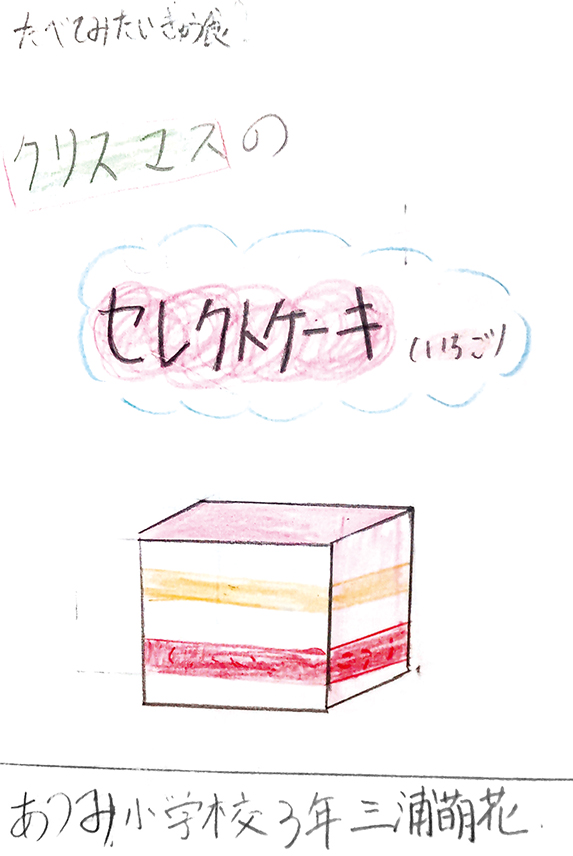 たべてみたいきゅう食
クリスマスの
セレクトケーキ (いちご)
あつみ小学校3年 三浦萌花